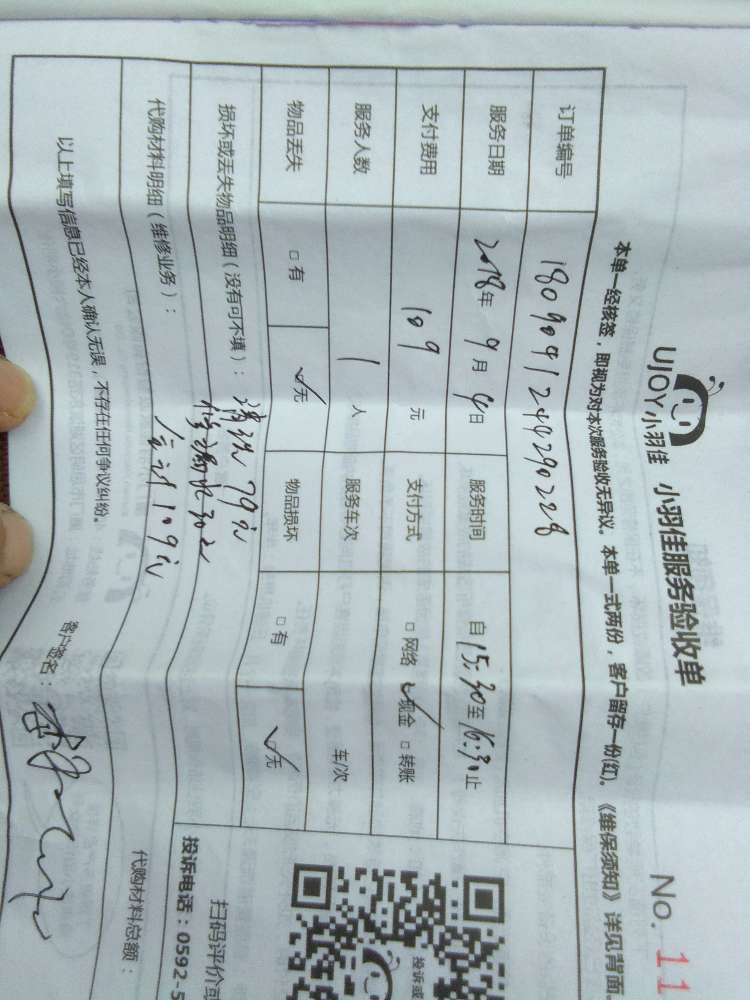 UJOY小羽佳 小羽佳服务验收单 No. 11
本单一经核签，即视为对本次服务验收无异议。本单一式两份，客户留存一份(红)。《维保须知》详见背面
订单编号 1809041249290228
服务日期 2018年9月4日 服务时间 自15:30至16:30止
支付费用 109元 支付方式 □网络 ✓现金 □转账
服务人数 1人 服务车次 车/次
物品丢失 □有 ✓无 物品损坏 □有 ✓无
损坏或丢失物品明细（没有可不填）： 清洗79元
30元
代购材料明细（维修业务）： 合计109元
代购材料总额：
以上填写信息已经本人确认无误，不存在任何争议纠纷。 客户签名：
投诉或
扫码评价
投诉电话：0592-5